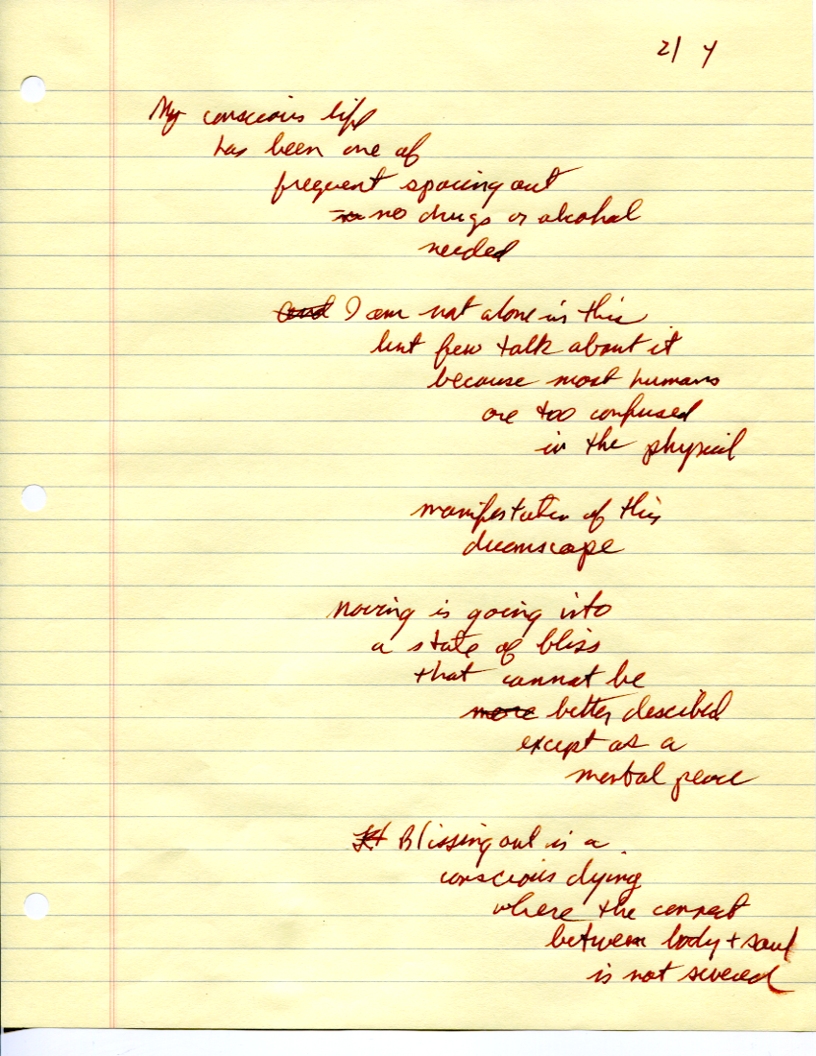 2/ 4
My conscious life
has been one of
frequent spacing out
no drugs or alcohol
needed
and I am not alone in this
but few talk about it
because most humans
are too confused
in the physical
manifestation of this
dreamscape
is going into
a state of bliss
that cannot be
more better described
except as a
mental peace
Blissing out is a
conscious dying
where the connect
between body + soul
is not severed